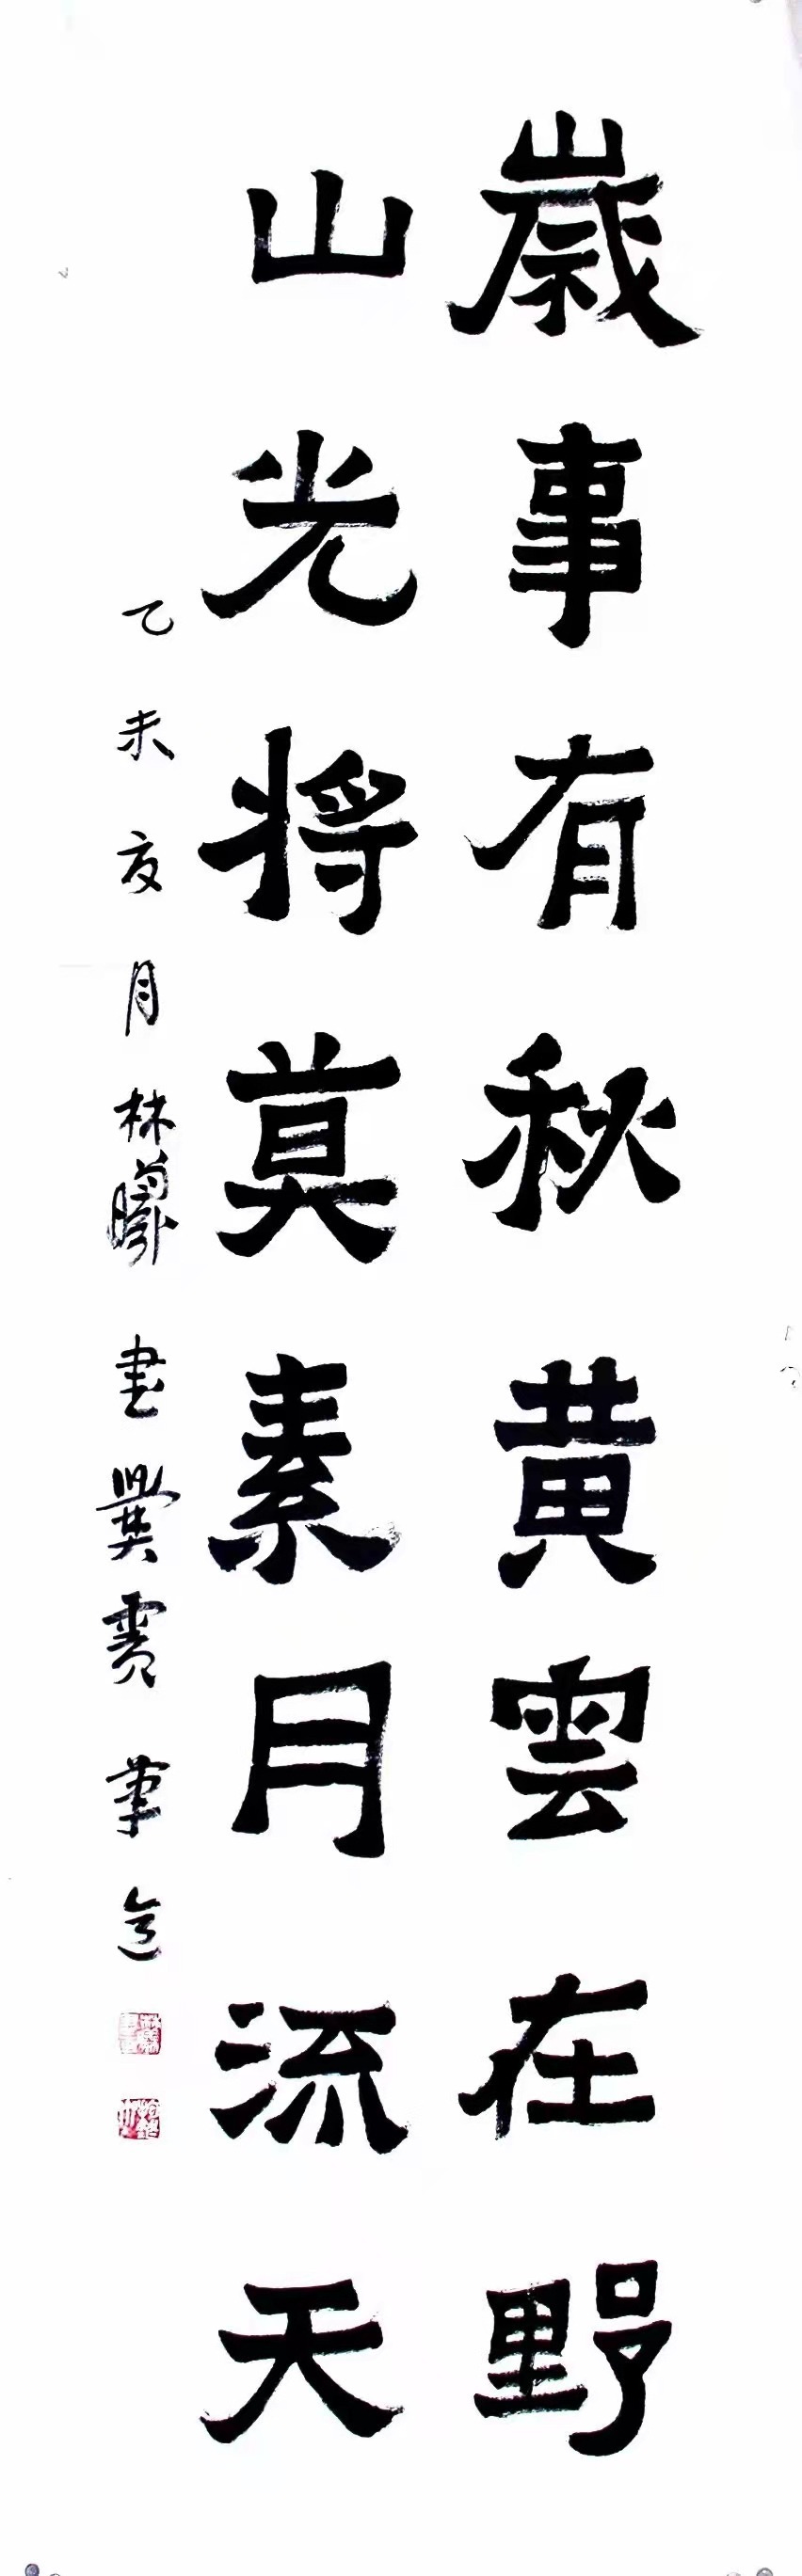 歲事有秋黄雲在野
山光將莫素月流天
乙未夜月林曦書爨寶筆意